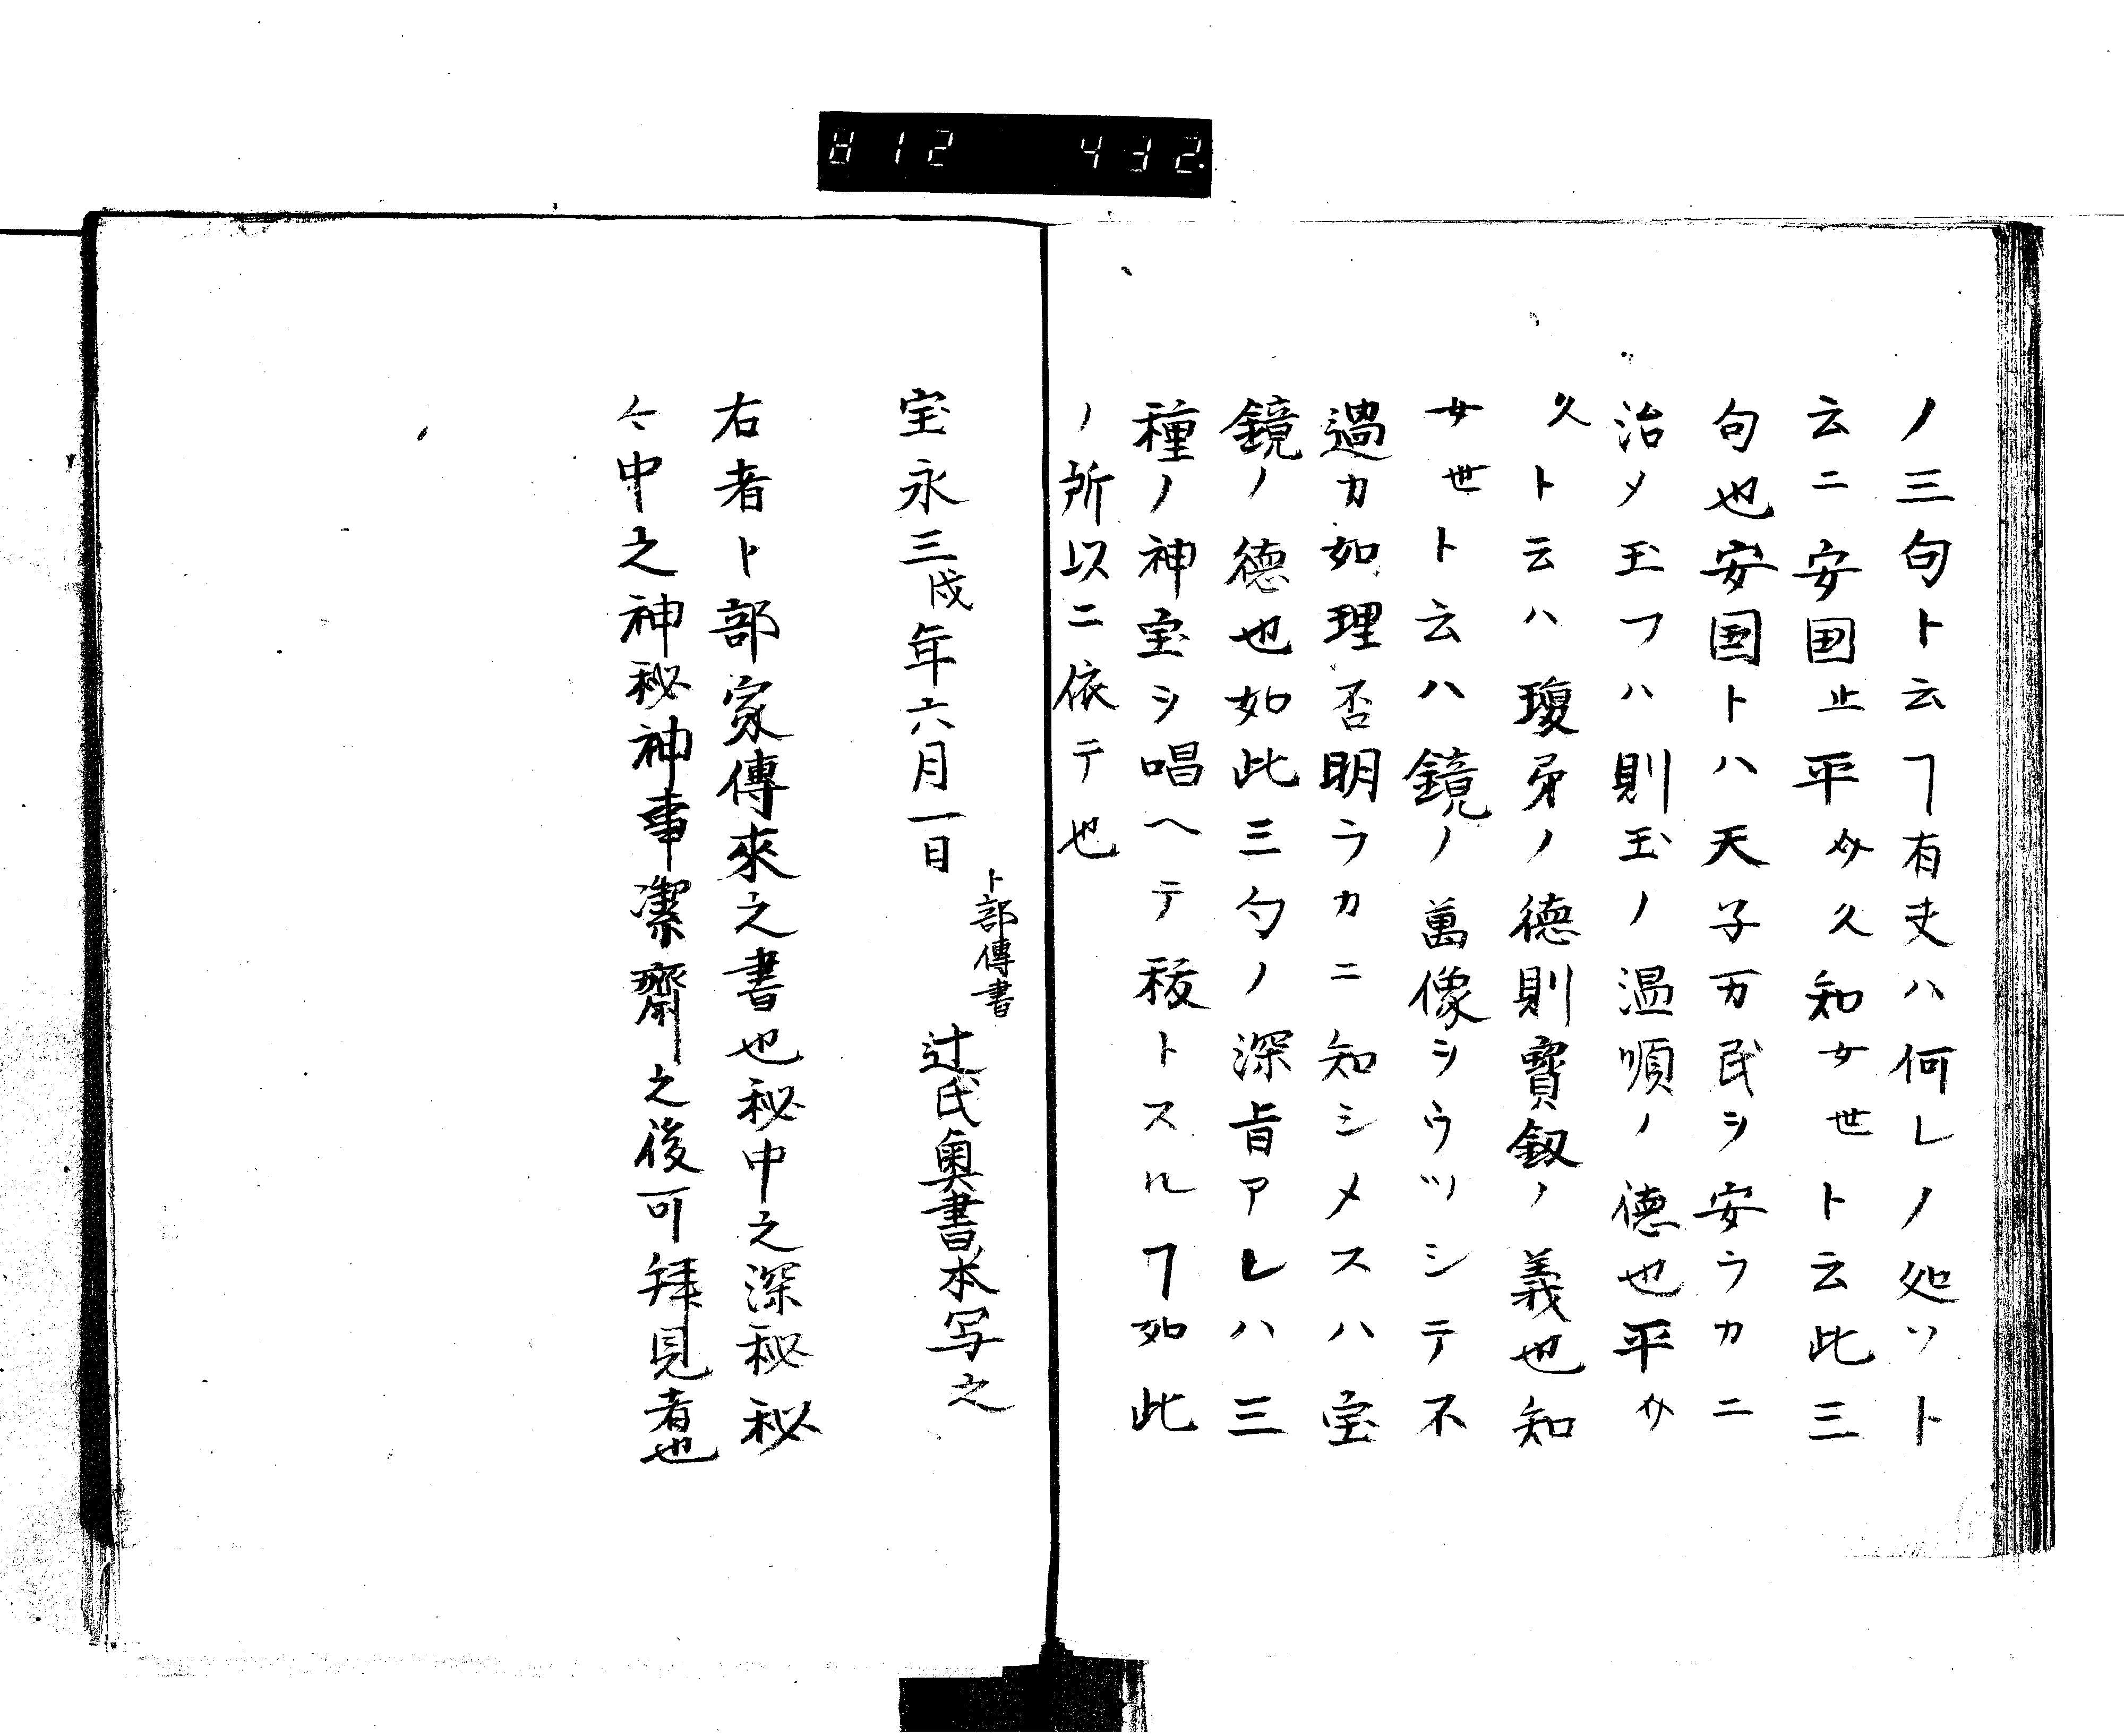 812 432
ノ三句ト云ヿ有夫ハ何レノ処ソト
云ニ安国止平ケ久知女世ト云此三
句也安国トハ天子万民ヲ安ラカニ
治メ玉フハ則玉ノ温順ノ徳也平ケ
久ト云ハ瓊矛ノ徳則寶釼ノ義也知
女世ト云ハ鏡ノ萬像ヲウツシテ不
過カ如理否明ラカニ知シメスハ宝
鏡ノ徳也如此三句ノ深旨アレハ三
種ノ神宝ヲ唱ヘテ秡トスルヿ如此
ノ所以ニ依テ也
宝永三戌年六月一日
卜部傳書
辻氏奥書本写之
右者卜部家傳來之書也秘中之深秘秘
々中之神秘神事潔齋之後可拜見者也